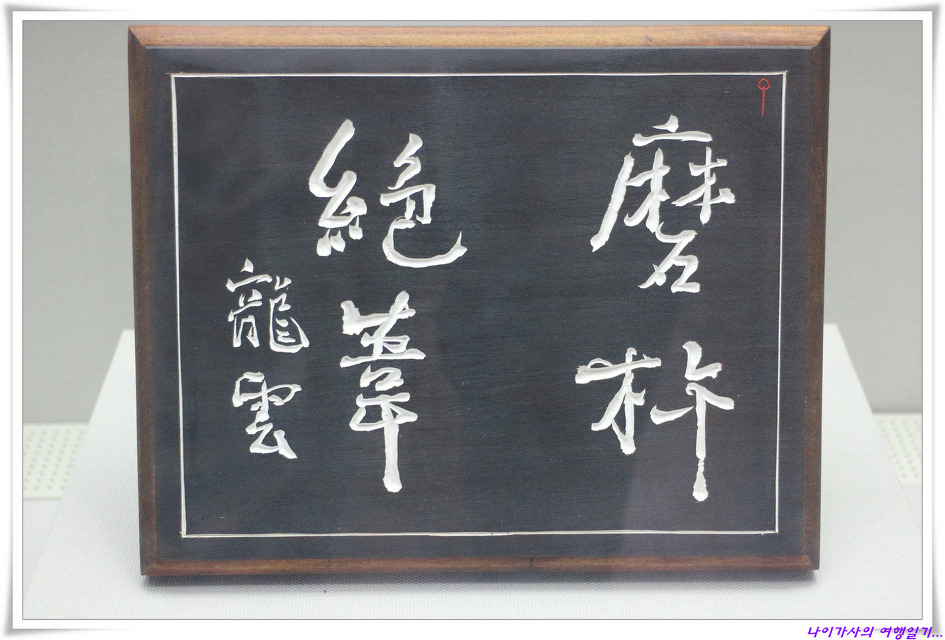 磨杵
絶葦
龍雲
나이가사의 여행일기...